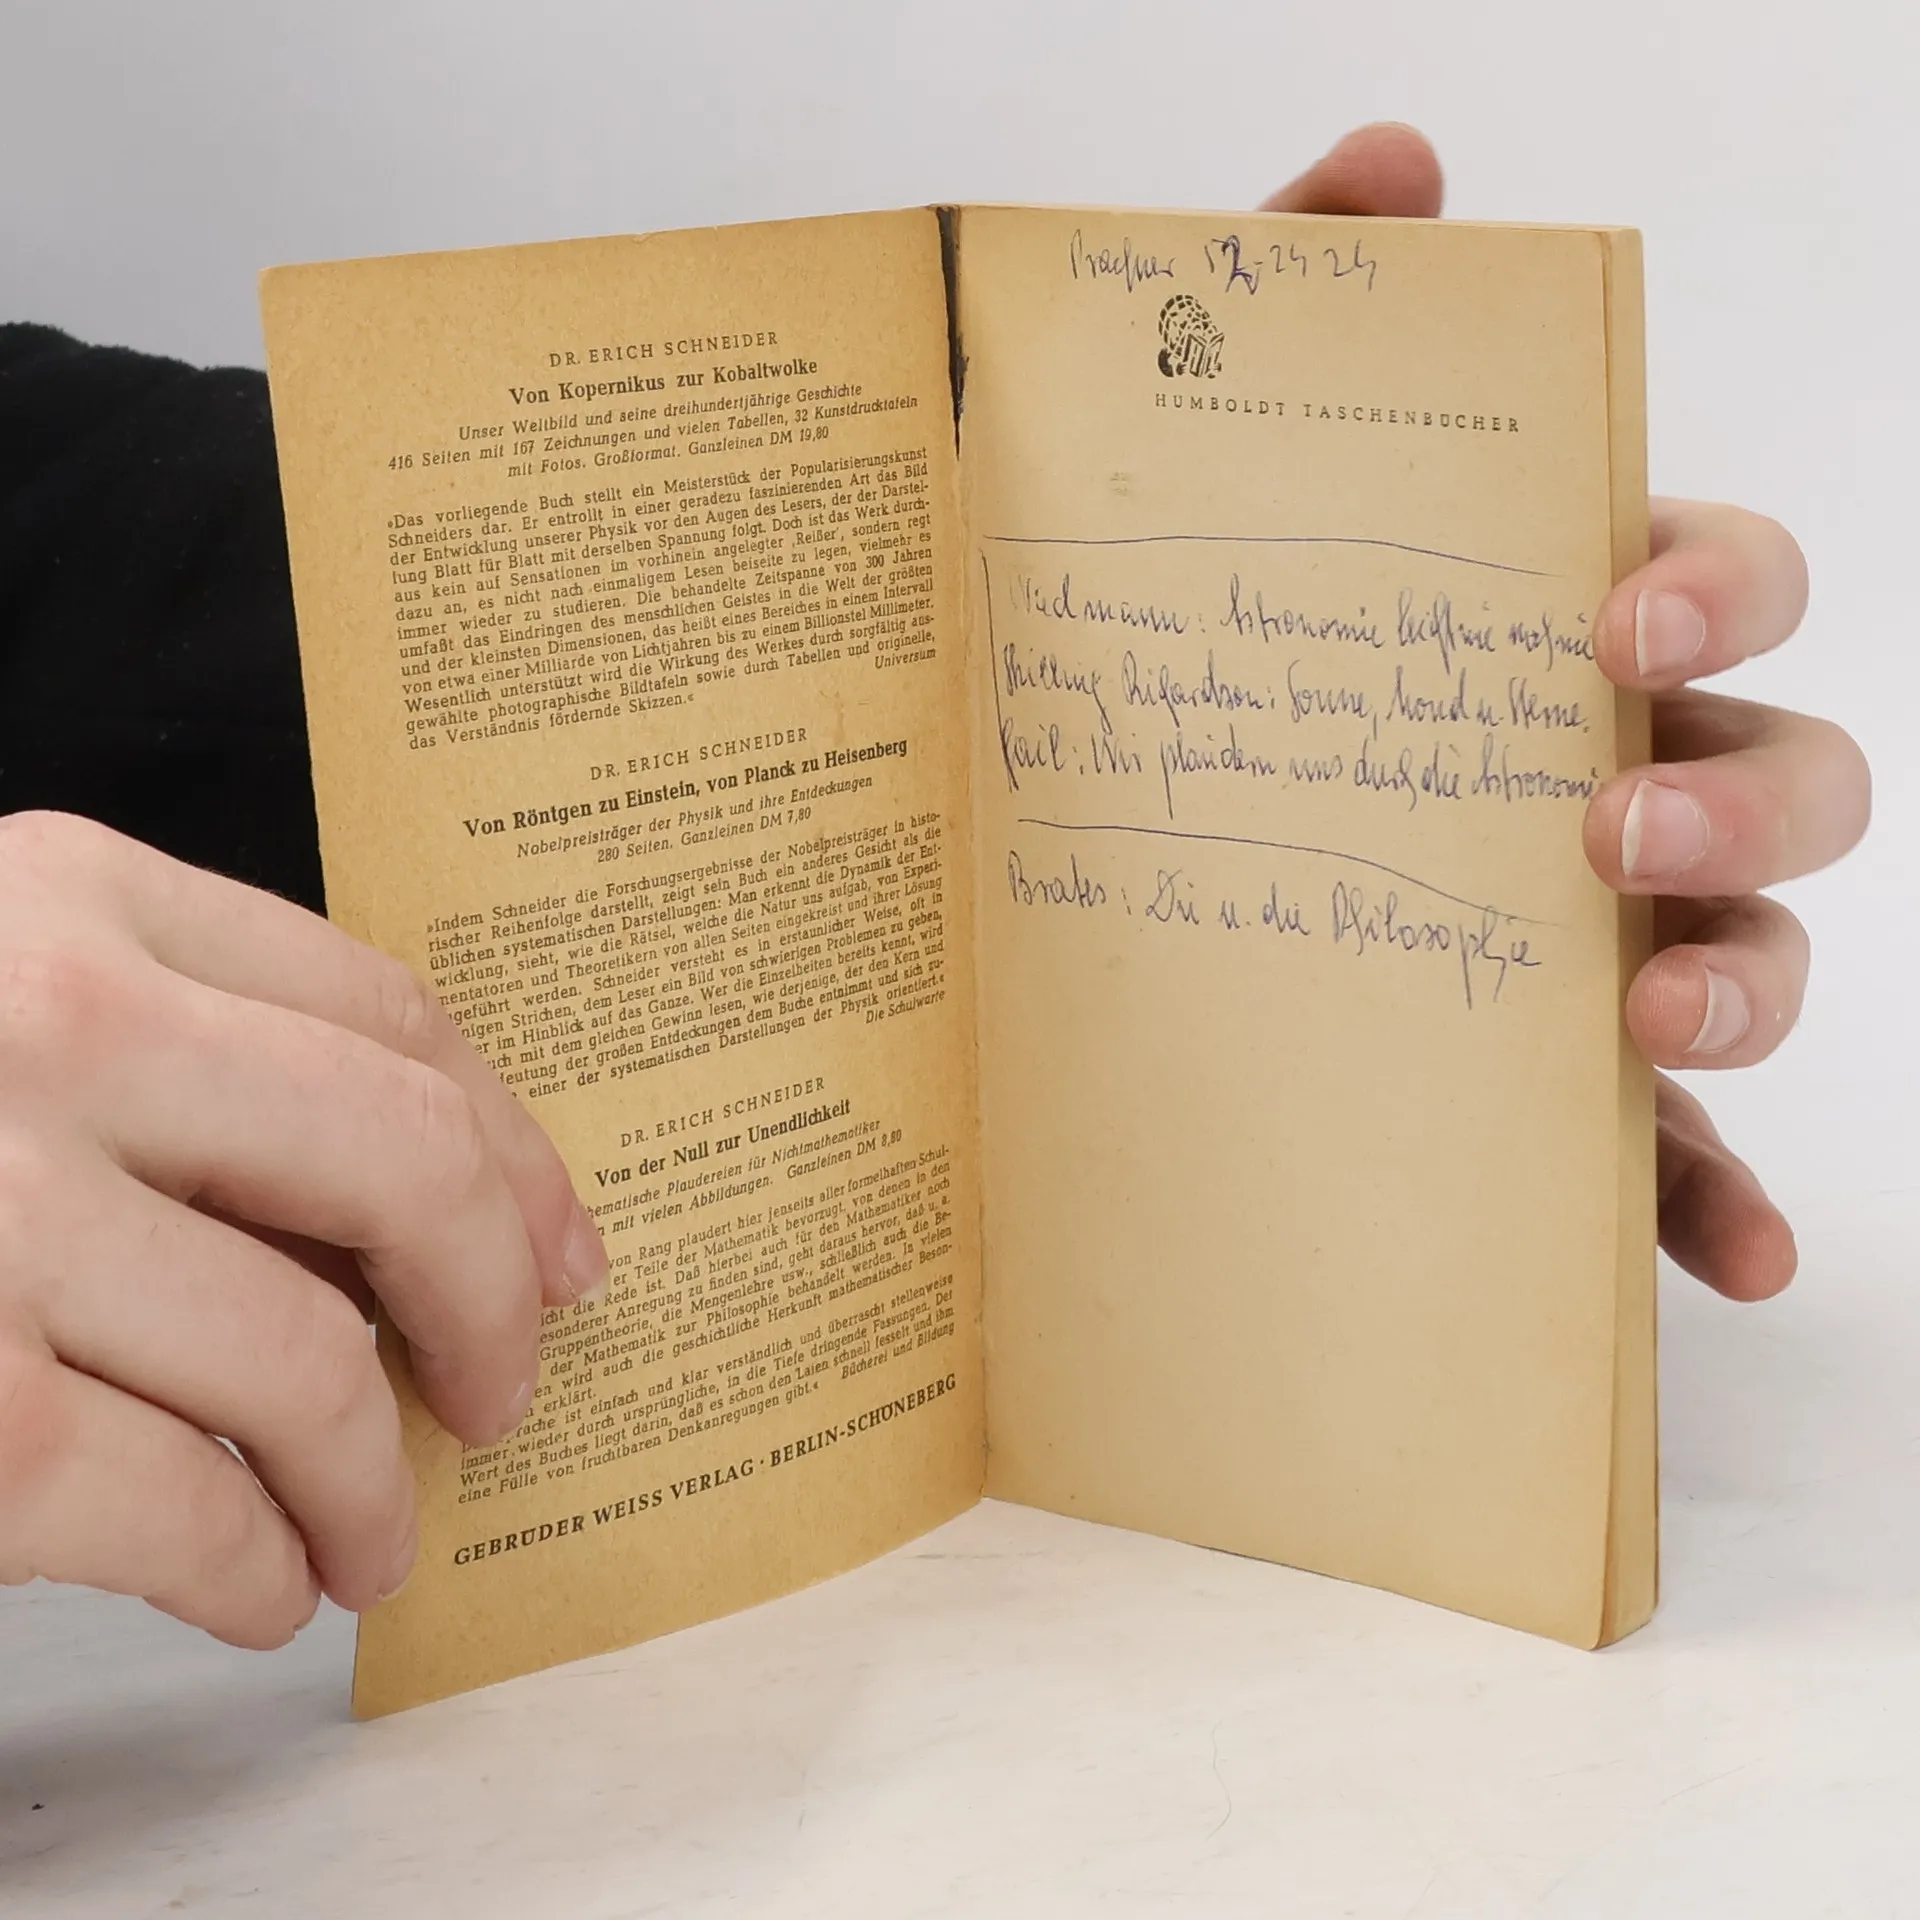 DR. ERICH SCHNEIDER
Von Kopernikus zur Kobaltwolke
Unser Weltbild und seine dreihundertjährige Geschichte
416 Seiten mit 167 Zeichnungen und vielen Tabellen, 32 Kunstdrucktafeln
mit Fotos. Großformat. Ganzleinen DM 19,80
»Das vorliegende Buch stellt ein Meisterstück der Popularisierungskunst
Schneiders dar. Er entrollt in einer geradezu faszinierenden Art das Bild
der Entwicklung unserer Physik vor den Augen des Lesers, der der Darstel-
lung Blatt für Blatt mit derselben Spannung folgt. Doch ist das Werk durch-
aus kein auf Sensationen im vorhinein angelegter ‚Reißer', sondern regt
dazu an, es nicht nach einmaligem Lesen beiseite zu legen, vielmehr es
immer wieder zu studieren. Die behandelte Zeitspanne von 300 Jahren
umfaßt das Eindringen des menschlichen Geistes in die Welt der größten
und der kleinsten Dimensionen, das heißt eines Bereiches in einem Intervall
von etwa einer Milliarde von Lichtjahren bis zu einem Billionstel Millimeter.
Wesentlich unterstützt wird die Wirkung des Werkes durch sorgfältig aus-
gewählte photographische Bildtafeln sowie durch Tabellen und originelle,
das Verständnis fördernde Skizzen.« Universum
DR. ERICH SCHNEIDER
Von Röntgen zu Einstein, von Planck zu Heisenberg
Nobelpreisträger der Physik und ihre Entdeckungen
280 Seiten. Ganzleinen DM 7,80
»Indem Schneider die Forschungsergebnisse der Nobelpreisträger in histo-
rischer Reihenfolge darstellt, zeigt sein Buch ein anderes Gesicht als die
üblichen systematischen Darstellungen: Man erkennt die Dynamik der Ent-
wicklung, sieht, wie die Rätsel, welche die Natur uns aufgab, von Experi-
mentatoren und Theoretikern von allen Seiten eingekreist und ihrer Lösung
geführt werden. Schneider versteht es in erstaunlicher Weise, oft in
nigen Strichen, dem Leser ein Bild von schwierigen Problemen zu geben,
er im Hinblick auf das Ganze. Wer die Einzelheiten bereits kennt, wird
uch mit dem gleichen Gewinn lesen, wie derjenige, der den Kern und
deutung der großen Entdeckungen dem Buche entnimmt und sich zu-
einer der systematischen Darstellungen der Physik orientiert.«
Die Schulwarte
DR. ERICH SCHNEIDER
Von der Null zur Unendlichkeit
hematische Plaudereien für Nichtmathematiker
n mit vielen Abbildungen. Ganzleinen DM 8,80
von Rang plaudert hier jenseits aller formelhaften Schul-
er Teile der Mathematik bevorzugt, von denen in den
icht die Rede ist. Daß hierbei auch für den Mathematiker noch
esonderer Anregung zu finden sind, geht daraus hervor, daß u. a.
Gruppentheorie, die Mengenlehre usw., schließlich auch die Be-
der Mathematik zur Philosophie behandelt werden. In vielen
en wird auch die geschichtliche Herkunft mathematischer Beson-
erklärt.
rache ist einfach und klar verständlich und überrascht stellenweise
immer wieder durch ursprüngliche, in die Tiefe dringende Fassungen. Der
Wert des Buches liegt darin, daß es schon den Laien schnell fesselt und ihm
eine Fülle von fruchtbaren Denkanregungen gibt.« Bücherei und Bildung
GEBRÜDER WEISS VERLAG · BERLIN-SCHÖNEBERG
52-24 24
HUMBOLDT TASCHENBÜCHER
Wiedmann: Astronomie leicht wie noch nie
Shilling Richardson: Sonne, Mond u. Sterne.
Gail: Wir plaudern uns durch die Astronomie
Brates: Du u. die Philosophie